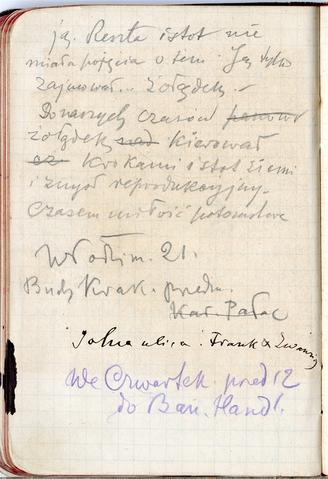 ją. Reszta istot nie
miała pojęcia o tem. Ją tylko
zajmował... żołądek. –
Do naszych czasów panował
żołądek nad kierował
krokami istot ziemi
i zmysł reprodukcyjny.
Czasem miłość potomstwa
Włodzim. 21.
Budz Krak. przedm.
Kar. Pałac
Jolna ulica: Frank &
We Czwartek przed 12
do Ban. Handl.